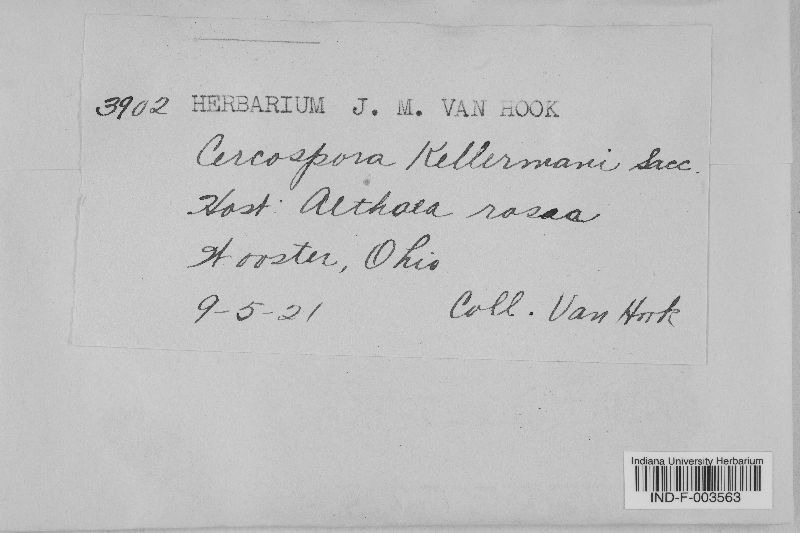 3902 HERBARIUM J. M. VAN HOOK
Cercospora Kellermani Sacc.
Host: Althaea rosea
Wooster, Ohio
9-5-21 Coll. Van Hook
Indiana University Herbarium
IND-F-003563